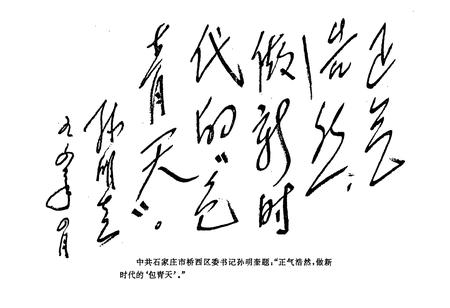 正气
浩然，
做新时
代的“包
青天”。
孙明奎
中共石家庄市桥西区委书记孙明奎题：“正气浩然，做新
时代的‘包青天’．”